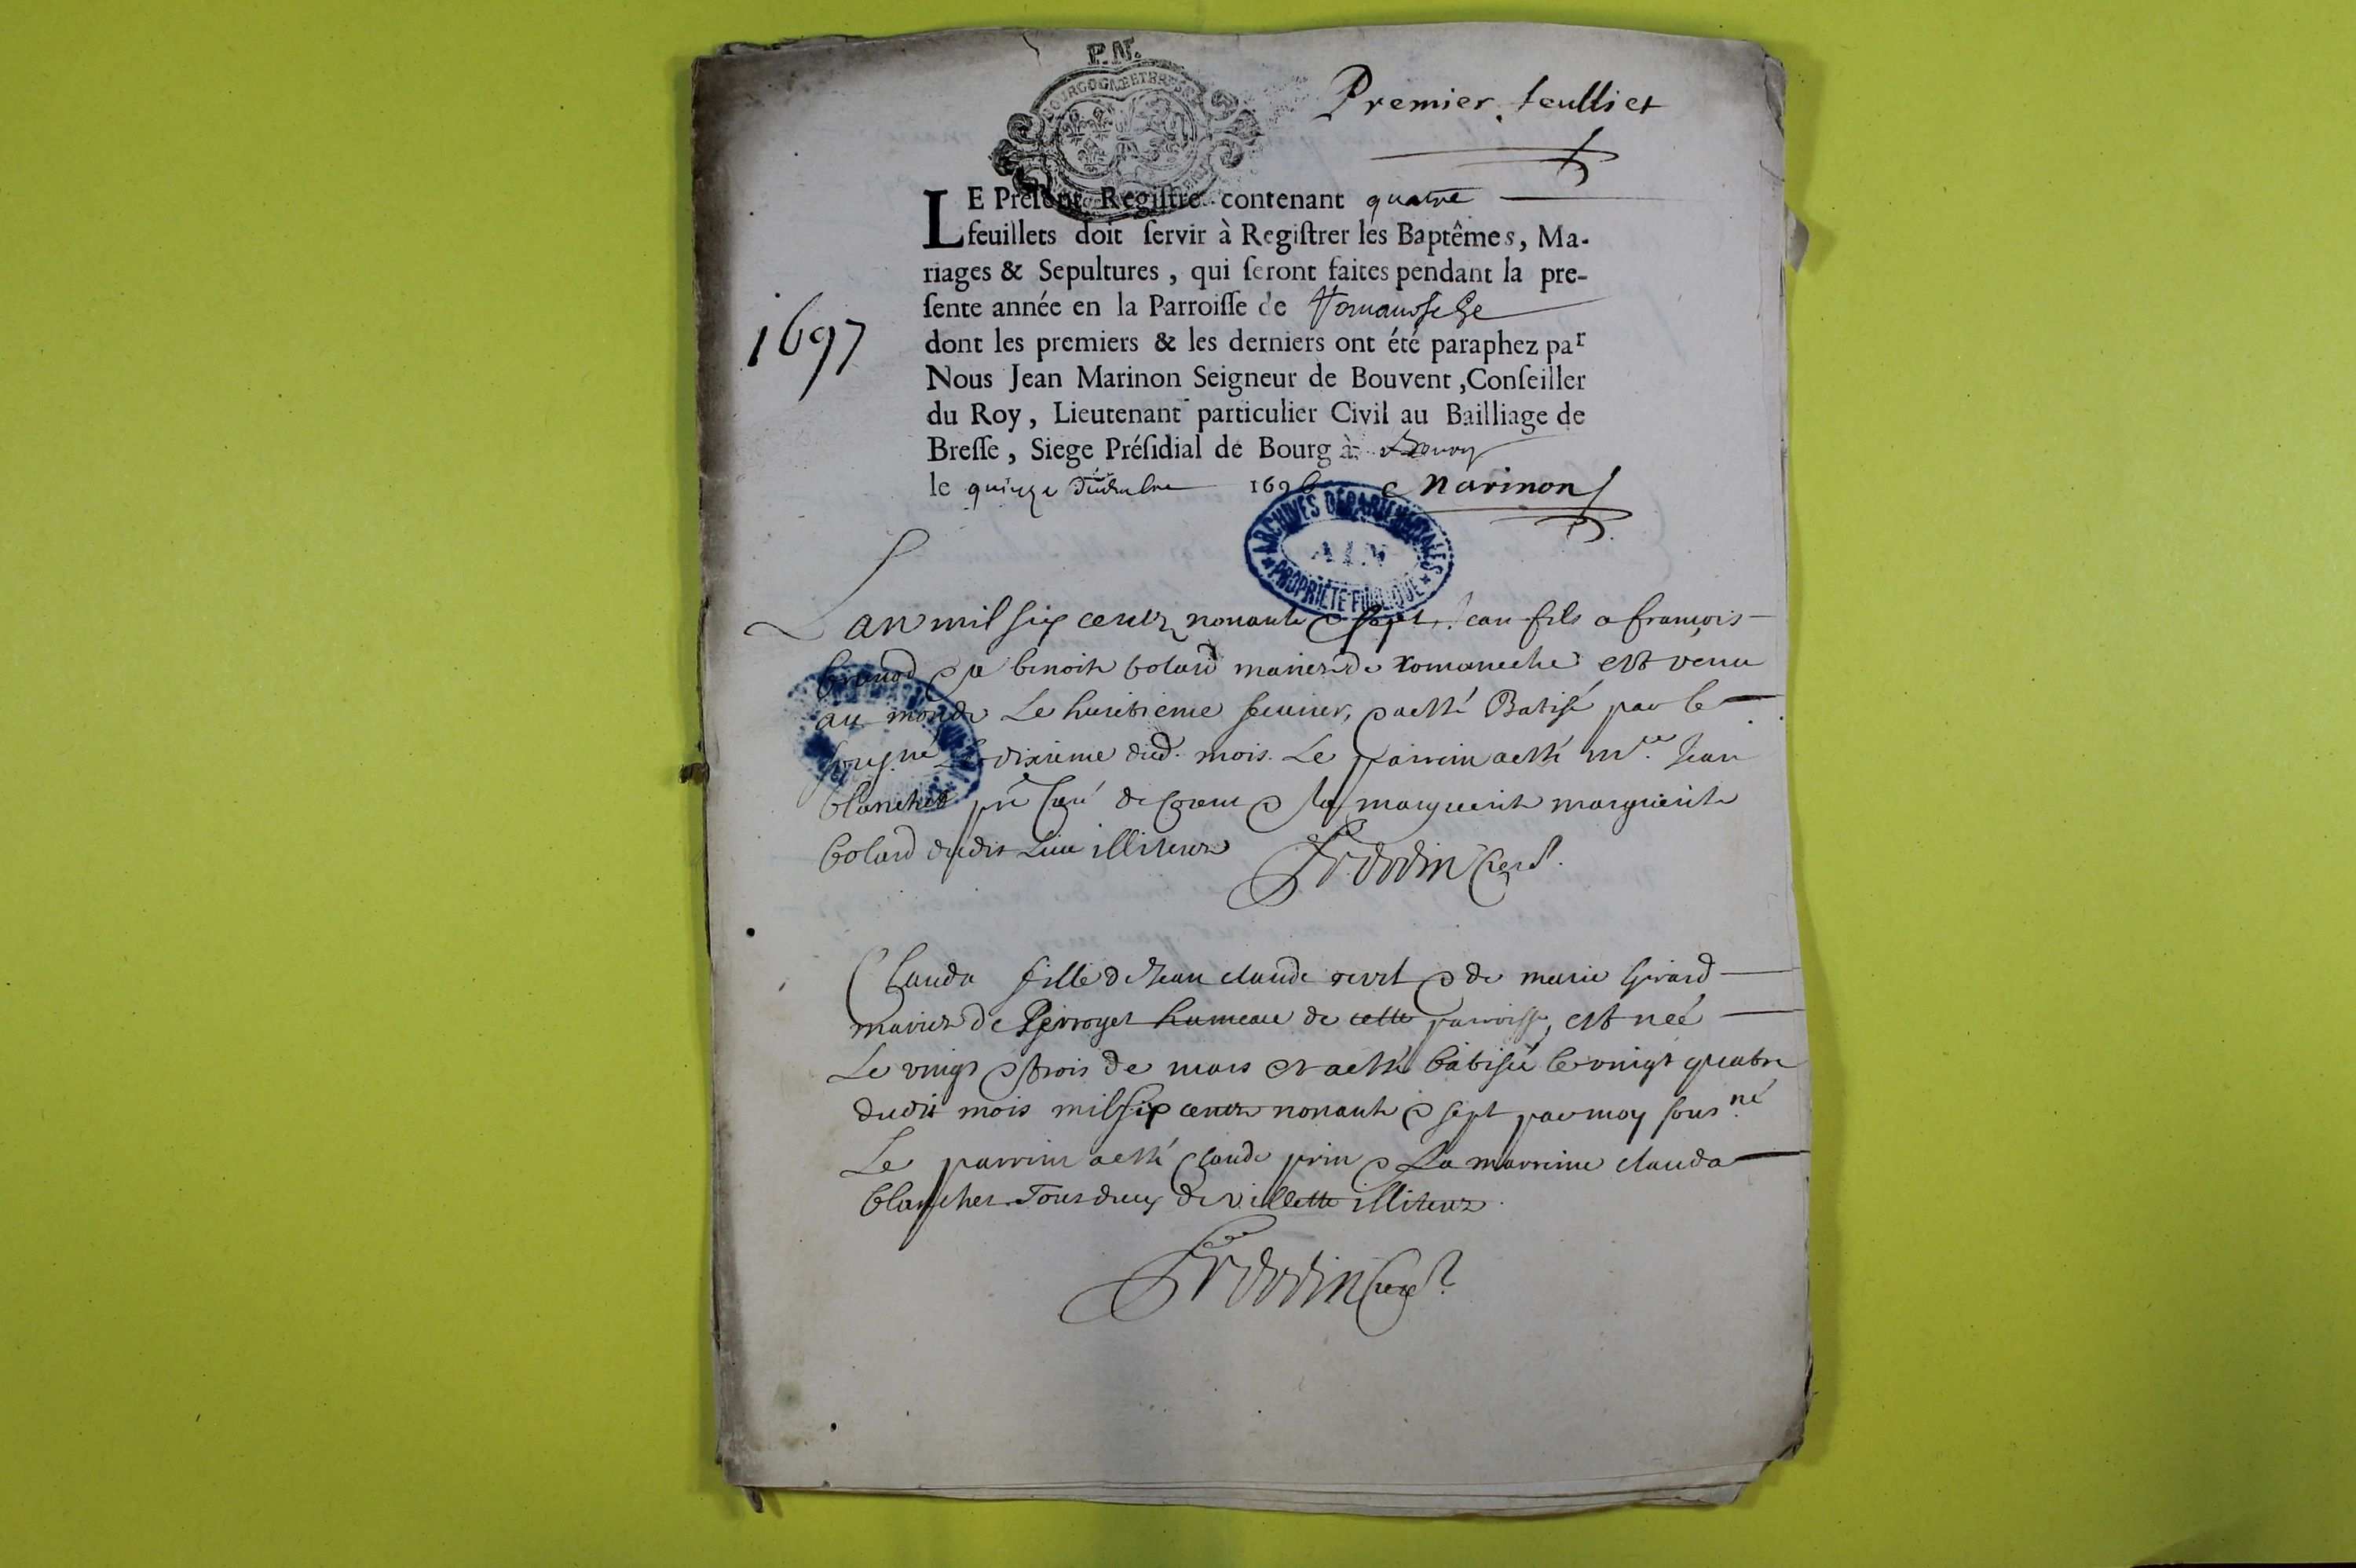 P.N.
BOURGOGNE ET BRESSE
Premier feulliet
LE Preſent Regiſtre contenant quatre
feuillets doit ſervir à Regiſtrer les Baptêmes, Ma-
riages & Sepultures, qui ſeront faites pendant la pre-
ſente année en la Parroiſſe de Romanesche
1697
dont les premiers & les derniers ont été paraphez par
Nous Jean Marinon Seigneur de Bouvent, Conſeiller
du Roy, Lieutenant particulier Civil au Bailliage de
Breſſe, Siege Préſidial de Bourg à Bourg
le quinze 1696 Marinon
ARCHIVES DÉPARTEMENTALES
AIN
PROPRIÉTÉ PUBLIQUE
L'an mil six centz nonante & sept, Jean fils a françois
& a benoite bolard mariez de romaneche est venu
au monde Le huictieme & a esté Batisé par le
sousné Le dixieme dud. mois. Le parrein a esté mre. Jean
blanchet pre Curé de & la marguerite marguerite
bolard dudit Lieu illiterez Dodin Curé.
Clauda fille de Jean claude revel & de marie Girard
mariez de Perroyet hameau de cette parroisse, est neé
Le vingt & trois de mars et a esté batisée le vingt quatre
dudit mois mil six centz nonante & sept par moy sousné
Le parrein a esté Claude prin & La marreine clauda
blanchet Tous deux de villette illiterez.
Dodin Curé